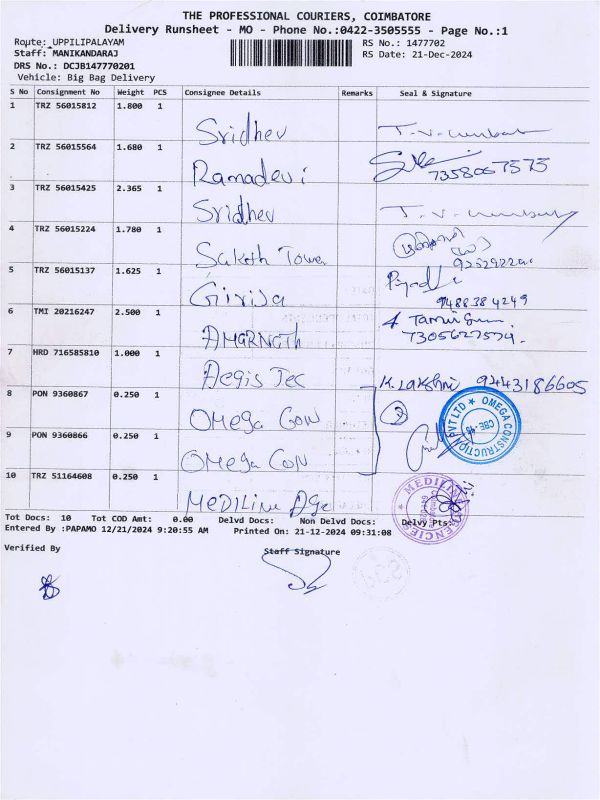 THE PROFESSIONAL COURIERS, COIMBATORE
Delivery Runsheet - MO - Phone No.:0422-3505555 - Page No.:1
Route: UPPILIPALAYAM RS No.: 1477702
Staff: MANIKANDARAJ RS Date: 21-Dec-2024
DRS No.: DCJB147770201
Vehicle: Big Bag Delivery
S No Consignment No Weight PCS Consignee Details Remarks Seal & Signature
1 TRZ 56015812 1.800 1
Sridhev
2 TRZ 56015564 1.680 1
Ramadevi 7358067575
3 TRZ 56015425 2.365 1
Sridhev
4 TRZ 56015224 1.780 1
Saketh Tower
5 TRZ 56015137 1.625 1
Girija 9488384249
6 TMI 20216247 2.500 1
AMARNATH
7 HRD 716585810 1.000 1
Aegis Tec K. Lakshmi 9443186605
8 PON 9360867 0.250 1
OMega Con 2
9 PON 9360866 0.250 1
OMega CON
OMEGA CONSTRUCTION PVT LTD
CBE-45
10 TRZ 51164608 0.250 1
MEDILINE Age
MEDILINE AGENCIES
Tot Docs: 10 Tot COD Amt: 0.00 Delvd Docs: Non Delvd Docs: Delvy Pts:
Entered By :PAPAMO 12/21/2024 9:20:55 AM Printed On: 21-12-2024 09:31:08
Verified By Staff Signature